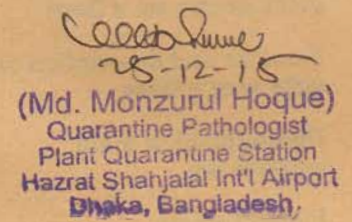 25-12-15
(Md. Monzurul Hoque)
Quarantine Pathologist
Plant Quarantine Station
Hazrat Shahjalal Int'l Airport
Dhaka, Bangladesh.